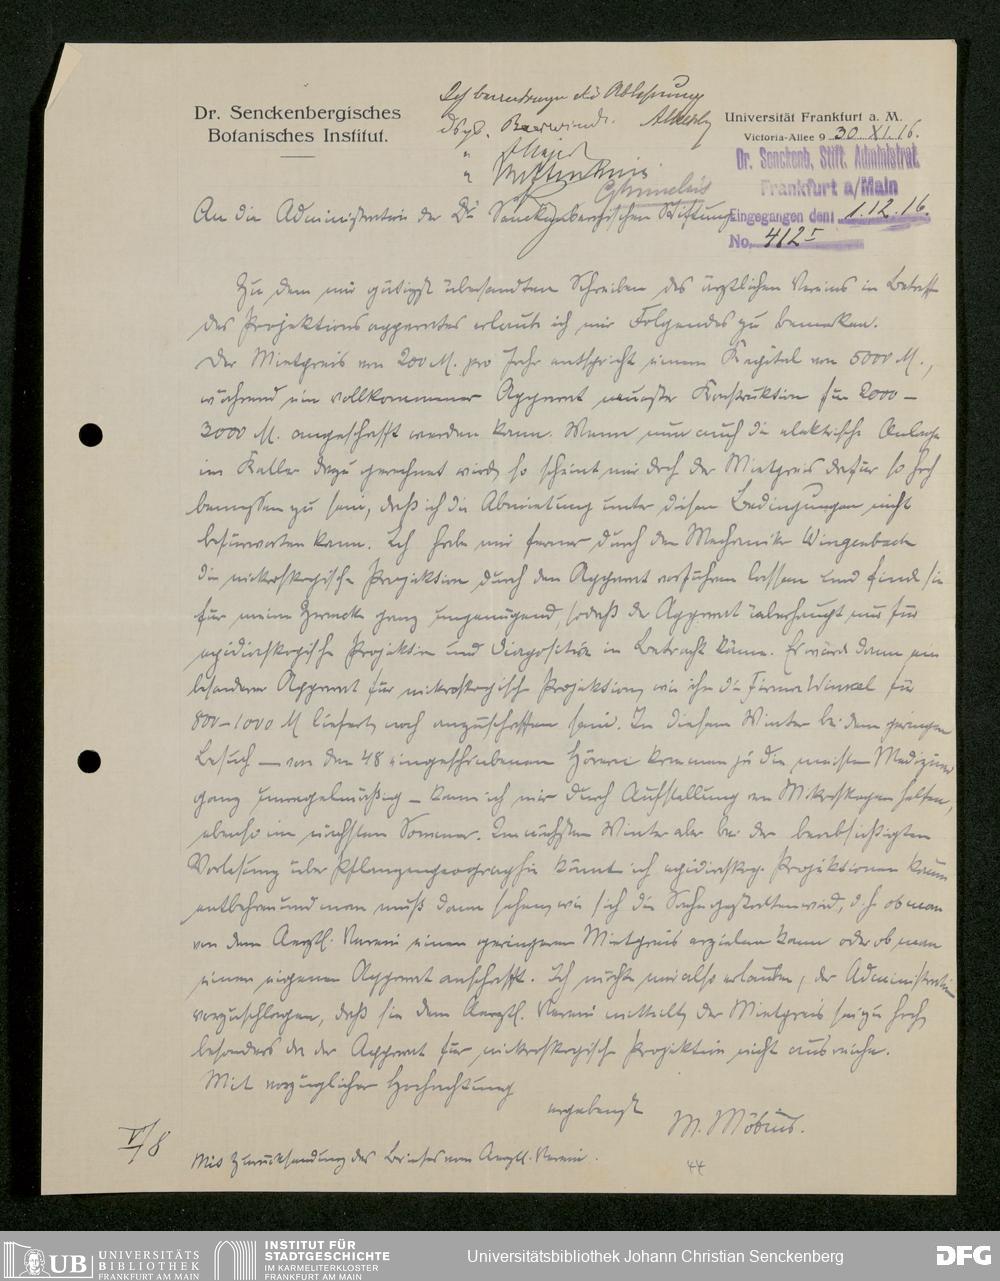 Dr. Senckenbergisches
Botanisches Institut.
Ich beantrage die Ablehnung
Universität Frankfurt a. M.
Victoria-Allee 9 30. XI. 16.
Dr. Senckenb. Stift. Administrat.
Frankfurt a/Main
Eingegangen den: 1.12.16.
No. 412 I
An die Administration der Dr. Senckenbergischen Stiftung
Zu dem mir gütigst übersandten Schreiben des ärztlichen Vereins in Betreff
des Projektionsapparates erlaube ich mir Folgendes zu bemerken.
Der Mietpreis von 200 M. pro Jahr entspricht einem Kapital von 5000 M.,
während ein vollkommener Apparat neuester Konstruktion für 2000–
3000 M. angeschafft werden kann. Wenn nun auch die elektrische Anlage
im Keller dazu gerechnet wird, so scheint mir doch der Mietpreis dafür so hoch
bemessen zu sein, daß ich die Abmietung unter diesen Bedingungen nicht
befürworten kann. Ich habe mir ferner durch den Mechaniker Wingenbach
die mikroskopische Projektion durch den Apparat vorführen lassen und finde sie
für meine Zwecke ganz ungenügend, sodaß der Apparat überhaupt nur für
epidiaskopische Projektion und Diapositive in Betracht käme. Es wäre dann ein
besonderer Apparat für mikroskopische Projektion, wie ihn die Firma Winkel für
800–1000 M liefert, noch anzuschaffen. In diesem Winter bei dem geringen
Besuch — von den 48 eingeschriebenen Hörern kommen ja die meisten Mediziner
ganz unregelmäßig – kann ich mir durch Aufstellung von Mikroskopen helfen,
ebenso im nächsten Sommer. Im nächsten Winter aber bei der beabsichtigten
Vorlesung über Pflanzengeographie könnte ich epidiaskop. Projektionen kaum
entbehren und man muß dann sehen, wie sich die Sache gestalten wird, d. h. ob man
von dem Aerztl. Verein einen geringeren Mietpreis erzielen kann oder ob man
einen eigenen Apparat anschafft. Ich möchte mir also erlauben, der Administration
vorzuschlagen, daß sie dem Aerztl. Verein mitteilt, der Mietpreis sei zu hoch,
besonders da der Apparat für mikroskopische Projektion nicht ausreiche.
Mit vorzüglicher Hochachtung
ergebenst
M. Möbius.
V/8
Mit Zurücksendung des Briefes vom Aerztl. Verein.
44
UB UNIVERSITÄTS
BIBLIOTHEK
FRANKFURT AM MAIN
INSTITUT FÜR
STADTGESCHICHTE
IM KARMELITERKLOSTER
FRANKFURT AM MAIN
Universitätsbibliothek Johann Christian Senckenberg
DFG